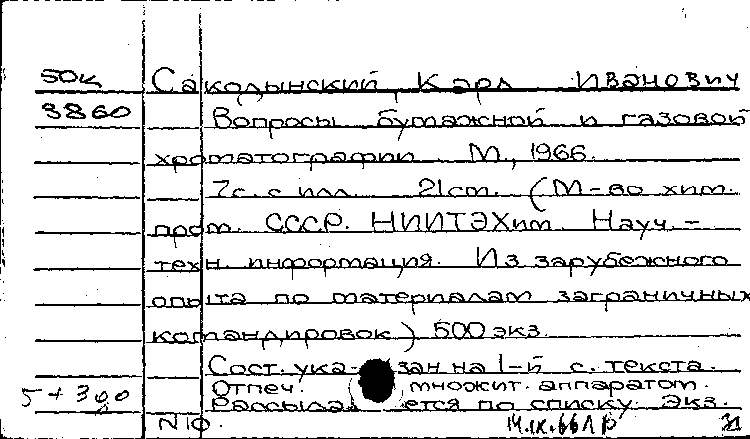 50к Сакодынский, Карл Иванович
3860 Вопросы бумажной и газовой
хроматографии. М., 1966.
7с. с илл. 21см. (М-во хим.
пром. СССР. НИИТЭХим. Науч.-
техн. информация. Из зарубежного
опыта по материалам заграничных
командировок) 500 экз.
Сост. указан на 1-й с. текста.
Отпеч. множит. аппаратом.
5+3 Рассылается по списку. Экз.
N 10. 14.IX.66